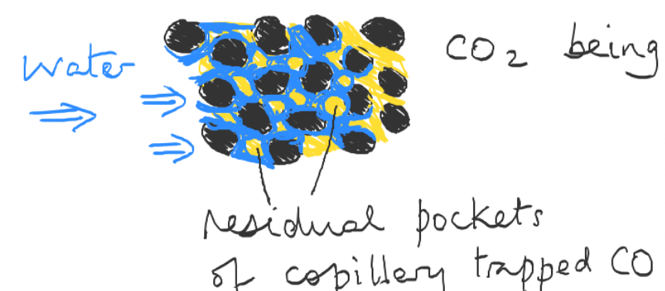 Water
CO2 being
residual pockets
of copillery trapped CO